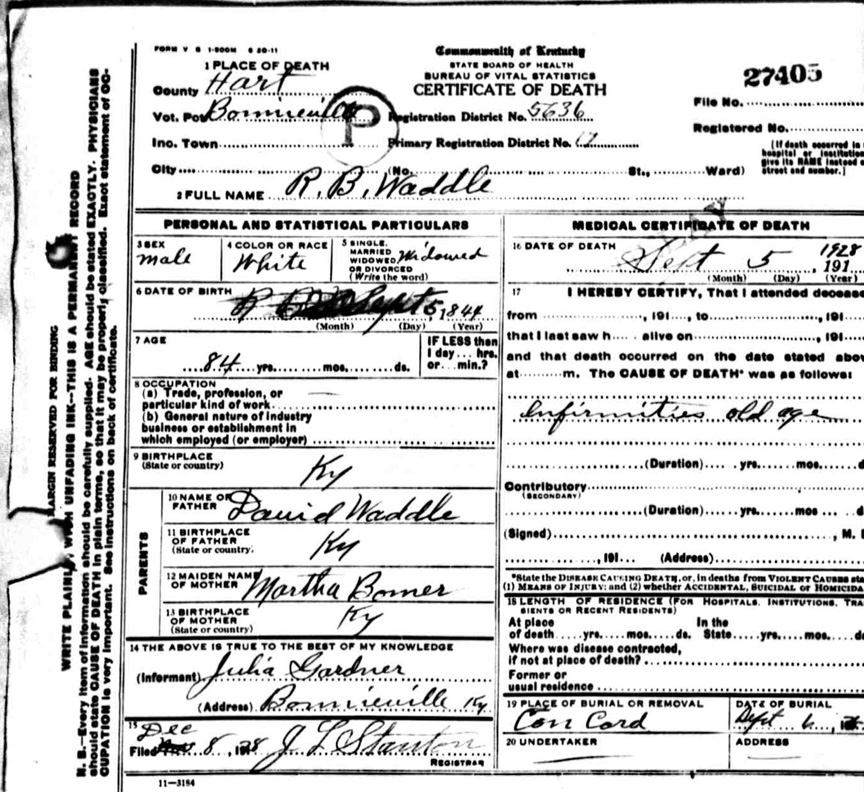 FORM V S 1-500M 6 20-11
Commonwealth of Kentucky
STATE BOARD OF HEALTH
BUREAU OF VITAL STATISTICS
CERTIFICATE OF DEATH
27405
File No.
Registered No.
(If death occurred in
hospital or institution
give its NAME instead o
street and number.)
1 PLACE OF DEATH
County Hart
Vot. Pct Bonnieville
P
Registration District No. 5636
Inc. Town
Primary Registration District No.
City (No. St., Ward)
2 FULL NAME R. B. Waddle
PERSONAL AND STATISTICAL PARTICULARS
3 SEX
male
4 COLOR OR RACE
White
5 SINGLE,
MARRIED
WIDOWED
OR DIVORCED
(Write the word)
Widowed
6 DATE OF BIRTH
Sept 5, 1844
(Month) (Day) (Year)
7 AGE
84 yrs. mos. ds.
IF LESS than
1 day... hrs.
or... min.?
8 OCCUPATION
(a) Trade, profession, or
particular kind of work
(b) General nature of industry
business or establishment in
which employed (or employer)
9 BIRTHPLACE
(State or country)
Ky
PARENTS
10 NAME OF
FATHER
David Waddle
11 BIRTHPLACE
OF FATHER
(State or country)
Ky
12 MAIDEN NAME
OF MOTHER
Martha Bomer
13 BIRTHPLACE
OF MOTHER
(State or country)
Ky
14 THE ABOVE IS TRUE TO THE BEST OF MY KNOWLEDGE
(Informant) Julia Gardner
(Address) Bonnieville Ky
15
Filed Dec 8, 1928 J L Stanton
REGISTRAR
11-3184
MEDICAL CERTIFICATE OF DEATH
16 DATE OF DEATH
Sept 5 1928
191
(Month) (Day) (Year)
17 I HEREBY CERTIFY, That I attended deceased
from , 191 , to , 191
that I last saw h alive on , 191
and that death occurred on the date stated abov
at m. The CAUSE OF DEATH* was as follows:
Infirmities old age
(Duration) yrs. mos. d
Contributory
(SECONDARY)
(Duration) yrs. mos d
(Signed) , M. D
, 191 (Address)
*State the DISEASE CAUSING DEATH, or, in deaths from VIOLENT CAUSES sta
(1) MEANS OF INJURY; and (2) whether ACCIDENTAL, SUICIDAL or HOMICIDA
18 LENGTH OF RESIDENCE (FOR HOSPITALS, INSTITUTIONS, TRA
SIENTS OR RECENT RESIDENTS)
At place
of death yrs. mos. ds.
In the
State yrs. mos. d
Where was disease contracted,
if not at place of death?
Former or
usual residence
19 PLACE OF BURIAL OR REMOVAL
Con Cord
DATE OF BURIAL
Sept 6, 19
20 UNDERTAKER
ADDRESS
MARGIN RESERVED FOR BINDING
WRITE PLAINLY, WITH UNFADING INK—THIS IS A PERMANENT RECORD
N. B.—Every item of information should be carefully supplied. AGE should be stated EXACTLY. PHYSICIANS
should state CAUSE OF DEATH in plain terms, so that it may be properly classified. Exact statement of OC-
CUPATION is very important. See instructions on back of certificate.